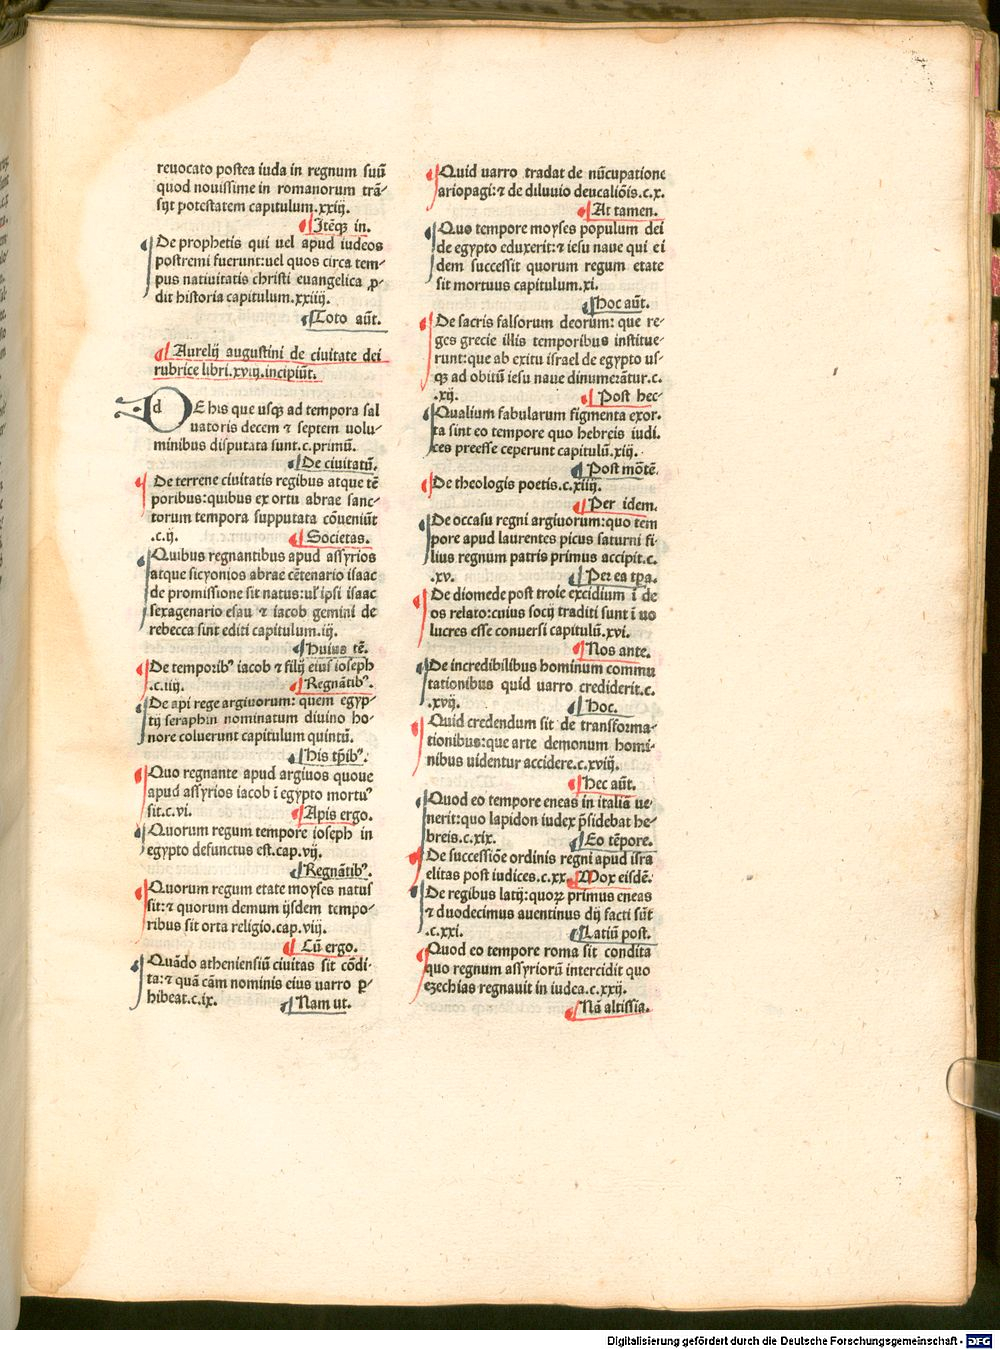 reuocato postea iuda in regnum suū
quod nouissime in romanorum trā-
sijt potestatem capitulum.xxiij.
Itēqꝫ in.
De prophetis qui uel apud iudeos
postremi fuerunt:uel quos circa tem-
pus natiuitatis christi euangelica ꝓ-
dit historia capitulum.xxiiij.
Toto aūt.
Aurelij augustini de ciuitate dei
rubrice libri.xviij.incipiūt.
DE his que usqꝫ ad tempora sal
uatoris decem ⁊ septem uolu-
minibus disputata sunt.c.primū.
De ciuitatū.
De terrene ciuitatis regibus atque tē
poribus:quibus ex ortu abrae sanc-
torum tempora supputata cōueniūt
.c.ij.
Societas.
Quibus regnantibus apud assyrios
atque sicyonios abrae cētenario isaac
de promissione sit natus:ul' ipsi isaac
sexagenario esau ⁊ iacob gemini de
rebecca sint editi capitulum.iij.
Huius tē.
De temporibꝰ iacob ⁊ filij eius ioseph
.c.iiij.
Regnātibꝰ.
De api rege argiuorum: quem egyp-
tij seraphin nominatum diuino ho-
nore coluerunt capitulum quintū.
His tp̄ibꝰ.
Quo regnante apud argiuos quoue
apud assyrios iacob ī egypto mortuꝰ
sit.c.vi.
Apis ergo.
Quorum regum tempore ioseph in
egypto defunctus est.cap.vij.
Regnātibꝰ.
Quorum regum etate moyses natus
sit:⁊ quorum demum ijsdem tempo-
ribus sit orta religio.cap.viij.
Cū ergo.
Quādo atheniensiū ciuitas sit cōdi-
ta:⁊ quā cām nominis eius uarro ꝑ-
hibeat.c.ix.
Nam ut.
Quid uarro tradat de nūcupatione
ariopagi:⁊ de diluuio deucaliōis.c.x.
At tamen.
Quo tempore moyses populum dei
de egypto eduxerit:⁊ iesu naue qui ei
dem successit quorum regum etate
sit mortuus capitulum.xi.
Hoc aūt.
De sacris falsorum deorum: que re-
ges grecie illis temporibus institue-
runt:que ab exitu israel de egypto us-
qꝫ ad obitū iesu naue dinumerātur.c.
.xij.
Post hec-
Qualium fabularum figmenta exor.
ta sint eo tempore quo hebreis iudi.
ces preesse ceperunt capitulū.xiij.
Post mōtē.
De theologis poetis.c.xiiij.
Per idem.
De occasu regni argiuorum:quo tem
pore apud laurentes picus saturni fi-
lius regnum patris primus accipit.c.
.xv.
Per ea tp̄a.
De diomede post troie excidium ī de
os relato:cuius socij traditi sunt ī uo
lucres esse conuersi capitulū.xvi.
Nos ante.
De incredibilibus hominum commu
tationibus quid uarro crediderit.c.
.xvij.
Hoc.
Quid credendum sit de transforma-
tionibus:que arte demonum homi-
nibus uidentur accidere.c.xviij.
Hec aūt.
Quod eo tempore eneas in italiā ue-
nerit:quo lapidon iudex p̄sidebat he-
breis.c.xix.
Eo tēpore.
De successiōe ordinis regni apud isra
elitas post iudices.c.xx.
Mox eisdē.
De regibus latij:quoꝝ primus eneas
⁊ duodecimus auentinus dij facti sūt
.c.xxi.
Latiū post.
Quod eo tempore roma sit condita
quo regnum assyriorū intercidit quo
ezechias regnauit in iudea.c.xxij.
Nā altissia.
Digitalisierung gefördert durch die Deutsche Forschungsgemeinschaft - DFG